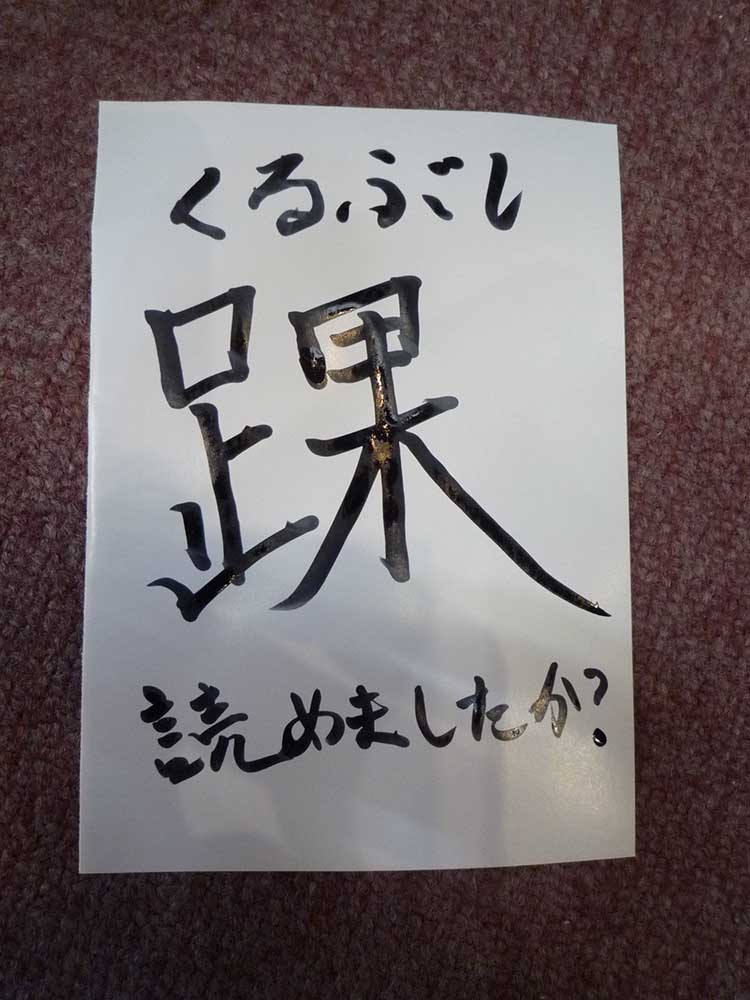 くるぶし
踝
読めましたか?